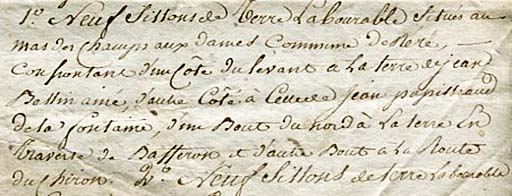 1.º Neuf Sillons de Terre Labourable Situés au
mas des Champs aux dames Commune de Néré,
Confrontant d'un Côté du levant a La terre de jean
Bellin ainé, d'autre Côté à Celle de jean papillaud
de la fontaine, d'un Bout du nord à La terre En
traverse de Bafferon, et d'autre Bout a La Route
du Chiron. 2.º Neuf Sillons de Terre Labourable